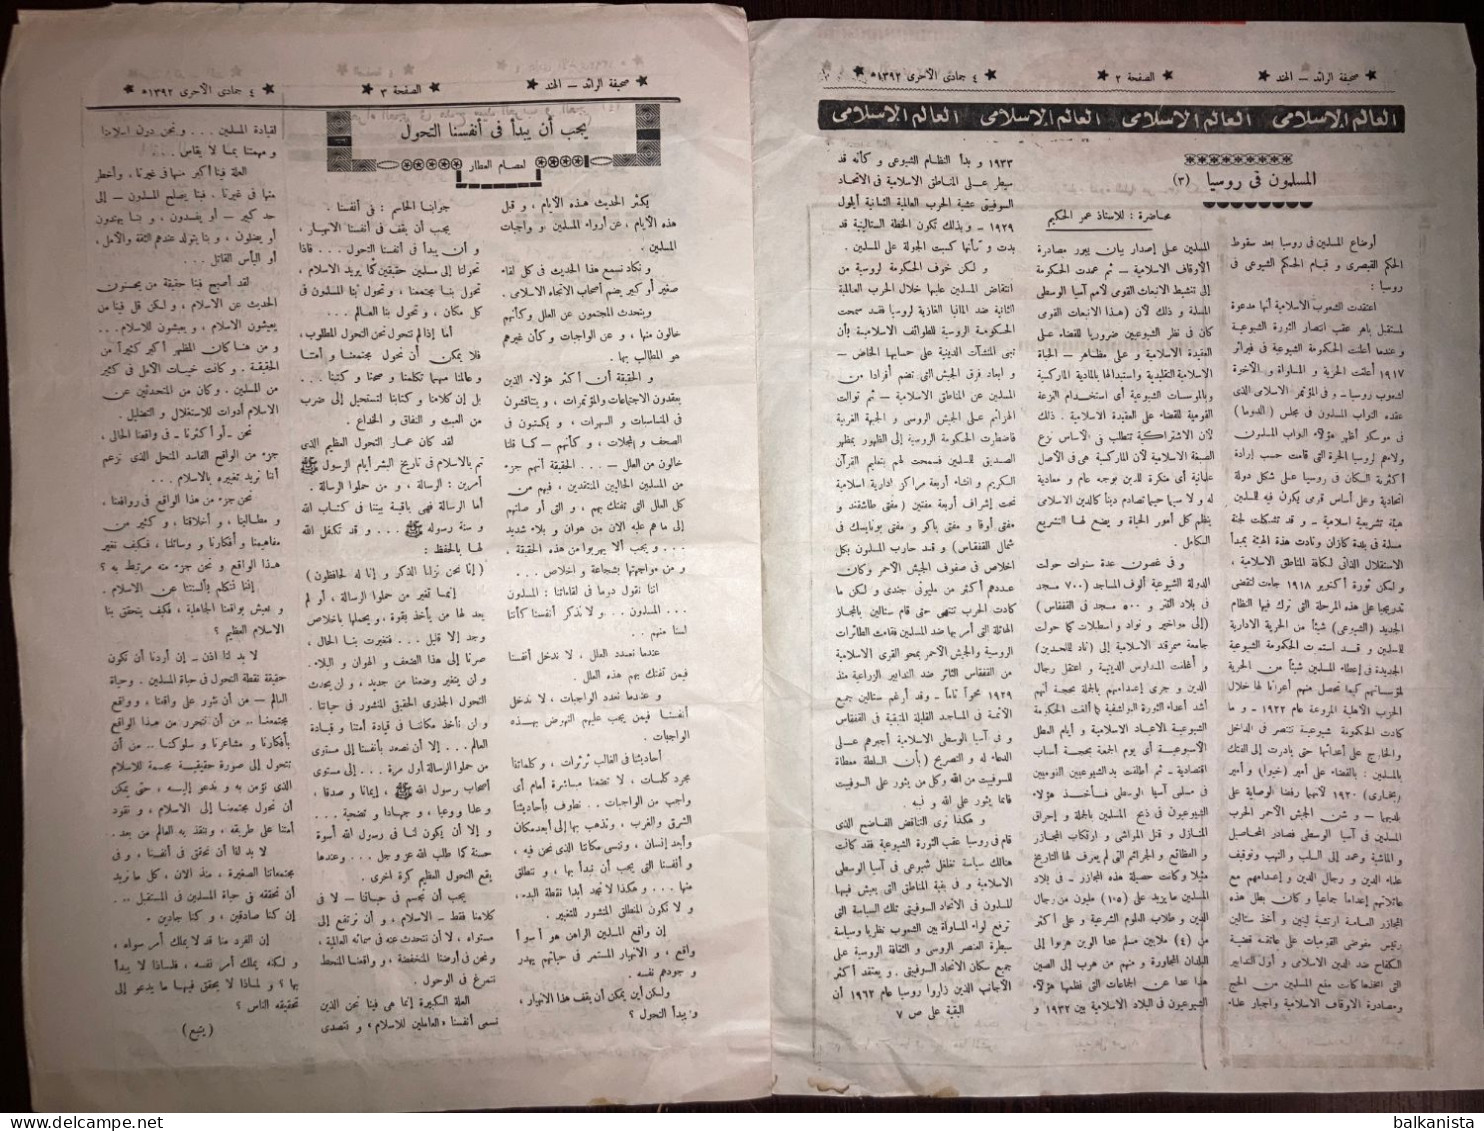 ★ صحيفة الرائد – الهند ★ الصفحة ٢ ★ ٤ جمادى الأخرى ١٣٩٢ه ★
العالم الإسلامى العالم الاسلامى العالم الإسلامى العالم الإسلامى
المسلمون فى روسيا (٣)
محاضرة : للاستاذ عمر الحكيم
أوضاع المسلمين فى روسيا بعد سقوط
الحكم القيصرى و قيام الحكم الشيوعى فى
روسيا :
اعتقدت الشعوب الاسلامية أنها مدعوة
لمستقبل باهر عقب انتصار الثورة الشيوعية
و عندما أعلنت الحكومة الشيوعية فى فبرائر
١٩١٧ أعلنت الحرية و المساواة و الآخوة
لشعوب روسيا – و فى المؤتمر الاسلامى الذى
عقده النواب المسلمون فى مجلس (الدوما)
فى موسكو أظهر هؤلاء النواب المسلمون
ولاءهم لروسيا الحرة التى قامت حسب إرادة
أكثرية السكان فى روسيا على شكل دولة
اتحادية و على أساس قومى يكون فيه للمسلمين
هيئة تشريعية اسلامية – و قد تشكلت لجنة
مسلمة فى بلدة كازان ونادت هذه الهيئة بمبدأ
الاستقلال الذاتى لكافة المناطق الاسلامية .
و لكن ثورة أكتوبر ١٩١٨ جاءت لتقضى
تدريجيا على هذه المرحلة التى ترك فيها النظام
الجديد (الشيوعى) شيئاً من الحرية الادارية
للمسلمين و قد استمرت الحكومة الشيوعية
الجديدة فى إعطاء المسلمين شيئاً من الحرية
لمؤسساتهم كيما تحصل منهم أعوانا لها خلال
الحرب الأهلية المروعة عام ١٩٢٢ – و ما
كادت الحكومة شيوعية تنتصر فى الداخل
والخارج على أعدائها حتى بادرت إلى الفتك
بالمسلمين : بالقضاء على أمير (خيوا) و أمير
(بخارى) ١٩٢٠ لأنهما رفضا الوصاية على
بلديهما – و شن الجيش الأحمر الحرب
المسلمين فى آسيا الوسطى فصادر المحاصيل
و الماشية وعمد إلى السلب و النهب وتوقيف
علماء الدين و رجال الدين و إعدامهم مع
عائلاتهم إعداماً جماعياً و كان بطل هذه
المجازر العامة ارتشيف لينين و أخذ ستالين
رئيس مفوضى القوميات على عاتقه قضية
الكفاح ضد الدين الاسلامى و أول التدابير
التى اتخذها كانت منع المسلمين من الحج
ومصادرة الأوقاف الاسلامية واجبار علماء
المسلمين على إصدار بيان يبرر مصادرة
الأوقاف الاسلامية – ثم عمدت الحكومة
إلى تنشيط الانبعاث القومى لأمم آسيا الوسطى
المسلمة و ذلك لأن (هذا الانبعاث القومى
كان فى نظر الشيوعيين ضروريا للقضاء على
العقيدة الاسلامية و على مظاهر – الحياة
الاسلامية التقليدية و استبدالها بالمادية الماركسية
و بالمؤسسات الشيوعية أى استخدام النزعة
القومية للقضاء على العقيدة الاسلامية . ذلك
لأن الاشتراكية تتطلب فى الأساس نزع
الصبغة الاسلامية لأن الماركسية هى فى الأصل
علمانية أى متنكرة للدين بوجه عام و معادية
له ولا سيما حينما تصادم ديناً كالدين الاسلامى
ينظم كل أمور الحياة و يضع لها التشريع
الكامل .
و فى غضون عدة سنوات حولت
الدولة الشيوعية ألوف المساجد (٧٠٠ مسجد
فى بلاد التتر و ٥٠٠ مسجد فى القفقاس)
(إلى مواخير و نواد و اسطبلات كما حولت
جامعة سمرقند الاسلامية إلى (ناد للملحدين)
و أغلقت المدارس الدينية و اعتقل رجال
الدين و جرى إعدامهم بالجملة بحجة أنهم
أشد أعداء الثورة البولشفية كما ألغت الحكومة
الشيوعية الأعياد الاسلامية و أيام العطل
الأسبوعية أى يوم الجمعة بحجة أسباب
اقتصادية – ثم أطلقت يد الشيوعيين القوميين
فى مسلمى آسيا الوسطى فأخذ هؤلاء
الشيوعيون فى ذبح المسلمين بالجملة و إحراق
المنازل و قتل المواشى و ارتكاب المجازر
و الفظائع و الجرائم التى لم يعرف لها التاريخ
مثيلا وكانت حصيلة هذه المجازر – فى بلاد
المسلمين ما يزيد على (١،٥) مليون من رجال
الدين و طلاب العلوم الشرعية و على أكثر
من (٤) ملايين مسلم عدا الذين هربوا إلى
البلدان المجاورة و منهم من هرب إلى الصين
هذا عدا عن المجاعات التى نظمها هؤلاء
الشيوعيون فى البلاد الاسلامية بين ١٩٣٢ و
١٩٣٣ و بدأ النظام الشيوعى و كأنه قد
سيطر على المناطق الاسلامية فى الاتحاد
السوفيتى عشية الحرب العالمية الثانية أيلول
١٩٣٩ – و بذلك تكون الخطة الستالينية قد
بدت و كأنها كسبت الجولة على المسلمين .
و لكن خوف الحكومة لروسية من
انتفاض المسلمين عليها خلال الحرب العالمية
الثانية ضد المانيا الغازية لروسيا فقد سمحت
الحكومة الروسية للطوائف الاسلامية بأن
تبنى المنشآت الدينية على حسابها الخاص –
و ابعاد فرق الجيش التى تضم أفرادا من
المسلمين عن المناطق الاسلامية – ثم توالت
الهزائم على الجيش الروسى و الجبهة الغربية
فاضطرت الحكومة الروسية إلى الظهور بمظهر
الصديق للمسلمين فسمحت لهم بتعليم القرآن
الكريم و انشاء أربعة مراكز إدارية اسلامية
تحت إشراف أربعة مفتين (مفتى طاشقند و
مفتى أوفا و مفتى باكو و مفتى بويناكسك فى
شمال القفقاس) و قد حارب المسلمون بكل
اخلاص فى صفوف الجيش الأحمر وكان
عددهم أكثر من مليونى جندى و لكن ما
كادت الحرب تنتهى حتى قام ستالين بالمجاز
الهائلة التى أمر بها ضد المسلمين فقامت الطائرات
الروسية والجيش الأحمر بمحو القرى الاسلامية
من القفقاس الثائر ضد التدابير الزراعية منذ
١٩٢٩ محواً تاماً – و قد أرغم ستالين جميع
الأئمة فى المساجد القليلة المتبقية فى القفقاس
و فى آسيا الوسطى الاسلامية أجبرهم على
الدعاء له و التصريح (بأن السلطة معطاة
للسوفيت من الله وكل من يثور على السوفيت
فانما يثور على الله و نبيه .
و هكذا نرى التناقض الفاضح الذى
قام فى روسيا عقب الثورة الشيوعية فقد كانت
هنالك سياسة تغلغل شيوعى فى آسيا الوسطى
الاسلامية و فى بقية المناطق التى يعيش فيها
المسلمون فى الاتحاد السوفيتى تلك السياسة التى
ترفع لواء المساواة بين الشعوب نظريا وسياسة
سيطرة العنصر الروسى و الثقافة الروسية على
جميع سكان الاتحاد السوفيتى . و يعتقد أكثر
الأجانب الذين زاروا روسيا عام ١٩٦٢ أن
البقية على ص ٧
★ صحيفة الرائد – الهند ★ الصفحة ٣ ★ ٤ جمادى الأخرى ١٣٩٢ه ★
يجب أن يبدأ فى أنفسنا التحول
لعصام العطار
يكثر الحديث هذه الأيام ، و قبل
هذه الأيام ، عن أدواء المسلمين و واجبات
المسلمين .
و نكاد نسمع هذا الحديث فى كل لقاء
صغير أو كبير يضم أصحاب الاتجاه الاسلامى .
ويتحدث المجتمعون عن العلل وكأنهم
خالون منها ، و عن الواجبات و كأن غيرهم
هو المطالب بها .
و الحقيقة أن أكثر هؤلاء الذين
يعقدون الاجتماعات والمؤتمرات ، و يتناقشون
فى المناسبات و السهرات ، و يكتبون فى
الصحف و المجلات ، و كأنهم – كما قلنا
خالون من العلل – ... الحقيقة أنهم جزء
من المسلمين الحاليين المنتقدين ، فيهم من
كل العلل التى تفتك بهم ، و التى أوصلتهم
إلى ما هم عليه الآن من هوان و بلاء شديد
... و يجب ألا يهربوا من هذه الحقيقة .
و من مواجهتها بشجاعة و اخلاص .
أننا نقول دوما فى لقاءاتنا : المسلمون
... المسلمون .. و لا نذكر أنفسنا كأننا
لسنا منهم ..
عندما نعدد العلل ، لا ندخل أنفسنا
فيمن تفتك بهم هذه العلل .
و عندما نعدد الواجبات ، لا ندخل
أنفسنا فيمن يجب عليهم النهوض بهذه
الواجبات .
أحاديثنا فى الغالب ثرثرات ، و كلماتنا
مجرد كلمات ، لا تضعنا مباشرة أمام أى
واجب من الواجبات .. نطوف بأحاديثنا
الشرق والغرب ، ونذهب بها إلى أبعد مكان
وأبعد إنسان ، وننسى مكاننا الذى نحن فيه ،
و أنفسنا التى يجب أن نبدأ بها ، و ننطلق
منها ... و هكذا لا نجد أبدا نقطة البدء ،
و لا نكون المنطلق المنشود للتغيير .
إن واقع المسلمين الراهن هو أسوأ
واقع ، و الانهيار المستمر فى حياتهم يهدد
و جودهم نفسه .
ولكن أين يمكن أن يقف هذا الانهيار ،
و يبدأ التحول ؟
جوابنا الحاسم : فى أنفسنا .
يجب أن يقف فى أنفسنا الانهيار ،
و أن يبدأ فى أنفسنا التحول ... فاذا
تحولنا إلى مسلمين حقيقيين كما يريد الاسلام ،
تحول بنا مجتمعنا ، وتحول بنا المسلمون فى
كل مكان ، و تحول بنا العالم ...
أما إذا لم نتحول نحن التحول المطلوب ،
فلا يمكن أن نحول مجتمعنا و أمتنا
و عالمنا مهما تكلمنا و صحنا و كتبنا ...
بل إن كلامنا و كتابنا لتستحيل إلى ضرب
من العبث و النفاق و الخداع .
لقد كان عماد التحول العظيم الذى
تم بالاسلام فى تاريخ البشر أيام الرسول ﷺ
أمرين : الرسالة ، و من حملوا الرسالة .
أما الرسالة فهى باقية بيننا فى كتاب الله
و سنة رسوله ﷺ ... و قد تكفل الله
لها بالحفظ :
(إنا نحن نزلنا الذكر و إنا له لحافظون)
إنما تغير من حملوا الرسالة ، أو لم
يعد لها من يأخذ بقوة ، و يحملها باخلاص
وجد إلا قليل ... فتغيرت بنا الحال ،
صرنا إلى هذا الضعف و الهوان و البلاء .
و لن يتغير وضعنا من جديد ، و لن يحدث
التحول الجذرى الحقيقى المنشود فى حياتنا .
و لن نأخذ مكاننا فى قيادة أمتنا و قيادة
العالم ... إلا أن نصعد بأنفسنا إلى مستوى
من حملوا الرسالة أول مرة ... إلى مستوى
أصحاب رسول الله ﷺ ، إيمانا و صدقا ،
و علما و وعيا ، و جهادا و تضحية ...
و إلا أن يكون لنا فى رسول الله أسوة
حسنة كما طلب الله عز و جل ... وعندها
يقع التحول العظيم كرة أخرى .
يجب أن نجسم فى حياتنا – لا فى
كلامنا فقط – الاسلام ، و أن نرتفع إلى
مستواه ، لا أن نتحدث عنه فى سمائه العالية ،
ونحن فى أرضنا المنخفضة ، و واقعنا المنحط
نتمرغ فى الوحول .
العلة الكبيرة إنما هى فينا نحن الذين
نسمى أنفسنا «العاملين للاسلام» و نتصدى
لقيادة المسلمين ... و نحن دون إسلامنا
و مهمتنا بما لا يقاس ..
العلة فينا أكبر منها فى غيرنا ، وأخطر
منها فى غيرنا . فبنا يصلح المسلمون – إلى
حد كبير – أو يفسدون ، و بنا يهتدون
أو يضلون ، و بنا يتولد عندهم الثقة والأمل ،
أو اليأس القاتل ...
لقد أصبح فينا حقيقة من يحسنون
الحديث عن الاسلام ، و لكن قل فينا من
يعيشون الاسلام ، و يعيشون للاسلام ...
و من هنا كان المظهر أكبر كثيراً من
الحقيقة . و كانت خيبات الأمل فى كثير
من المسلمين . وكان من المتحدثين عن
الاسلام أدوات للاستغلال و التضليل .
نحن – أو أكثرنا – فى واقعنا الحالى ،
جزء من الواقع الفاسد المنحل الذى نزعم
أننا نريد تغييره بالاسلام ..
نحن جزء من هذا الواقع فى دوافعنا ،
و مطالبنا ، و أخلاقنا ، و كثير من
مفاهيمنا و أفكارنا و وسائلنا ، فكيف نغير
هذا الواقع و نحن جزء منه مرتبط به ؟
إننا نتكلم بألسنتنا عن الاسلام .
و نعيش بواقعنا الجاهلية ، فكيف يتحقق بنا
الاسلام العظيم ؟
لا بد لنا اذن – إن أردنا أن نكون
حقيقة نقطة التحول فى حياة المسلمين . وحياة
العالم – من أن نثور على واقعنا ، و واقع
مجتمعنا .. من أن نتحرر من هذا الواقع
بأفكارنا و مشاعرنا و سلوكنا .. من أن
نتحول إلى صورة حقيقية مجسمة للاسلام
الذى نؤمن به و ندعو إليه ، حتى يمكن
أن نحول مجتمعنا إلى الاسلام ، و نقود
أمتنا على طريقه ، و ننقذ به العالم من بعد .
لا بد لنا أن نحقق فى أنفسنا ، و فى
مجتمعاتنا الصغيرة ، منذ الآن ، كل ما نريد
أن نحققه فى حياة المسلمين فى المستقبل ..
إن كنا صادقين ، و كنا جادين .
إن الفرد منا قد لا يملك أمر سواه ،
و لكنه يملك أمر نفسه ، فلماذا لا يبدأ
بها ؟ و لماذا لا يحقق فيها ما يدعو إلى
تحقيقه الناس ؟
(يتبع)
balkanista